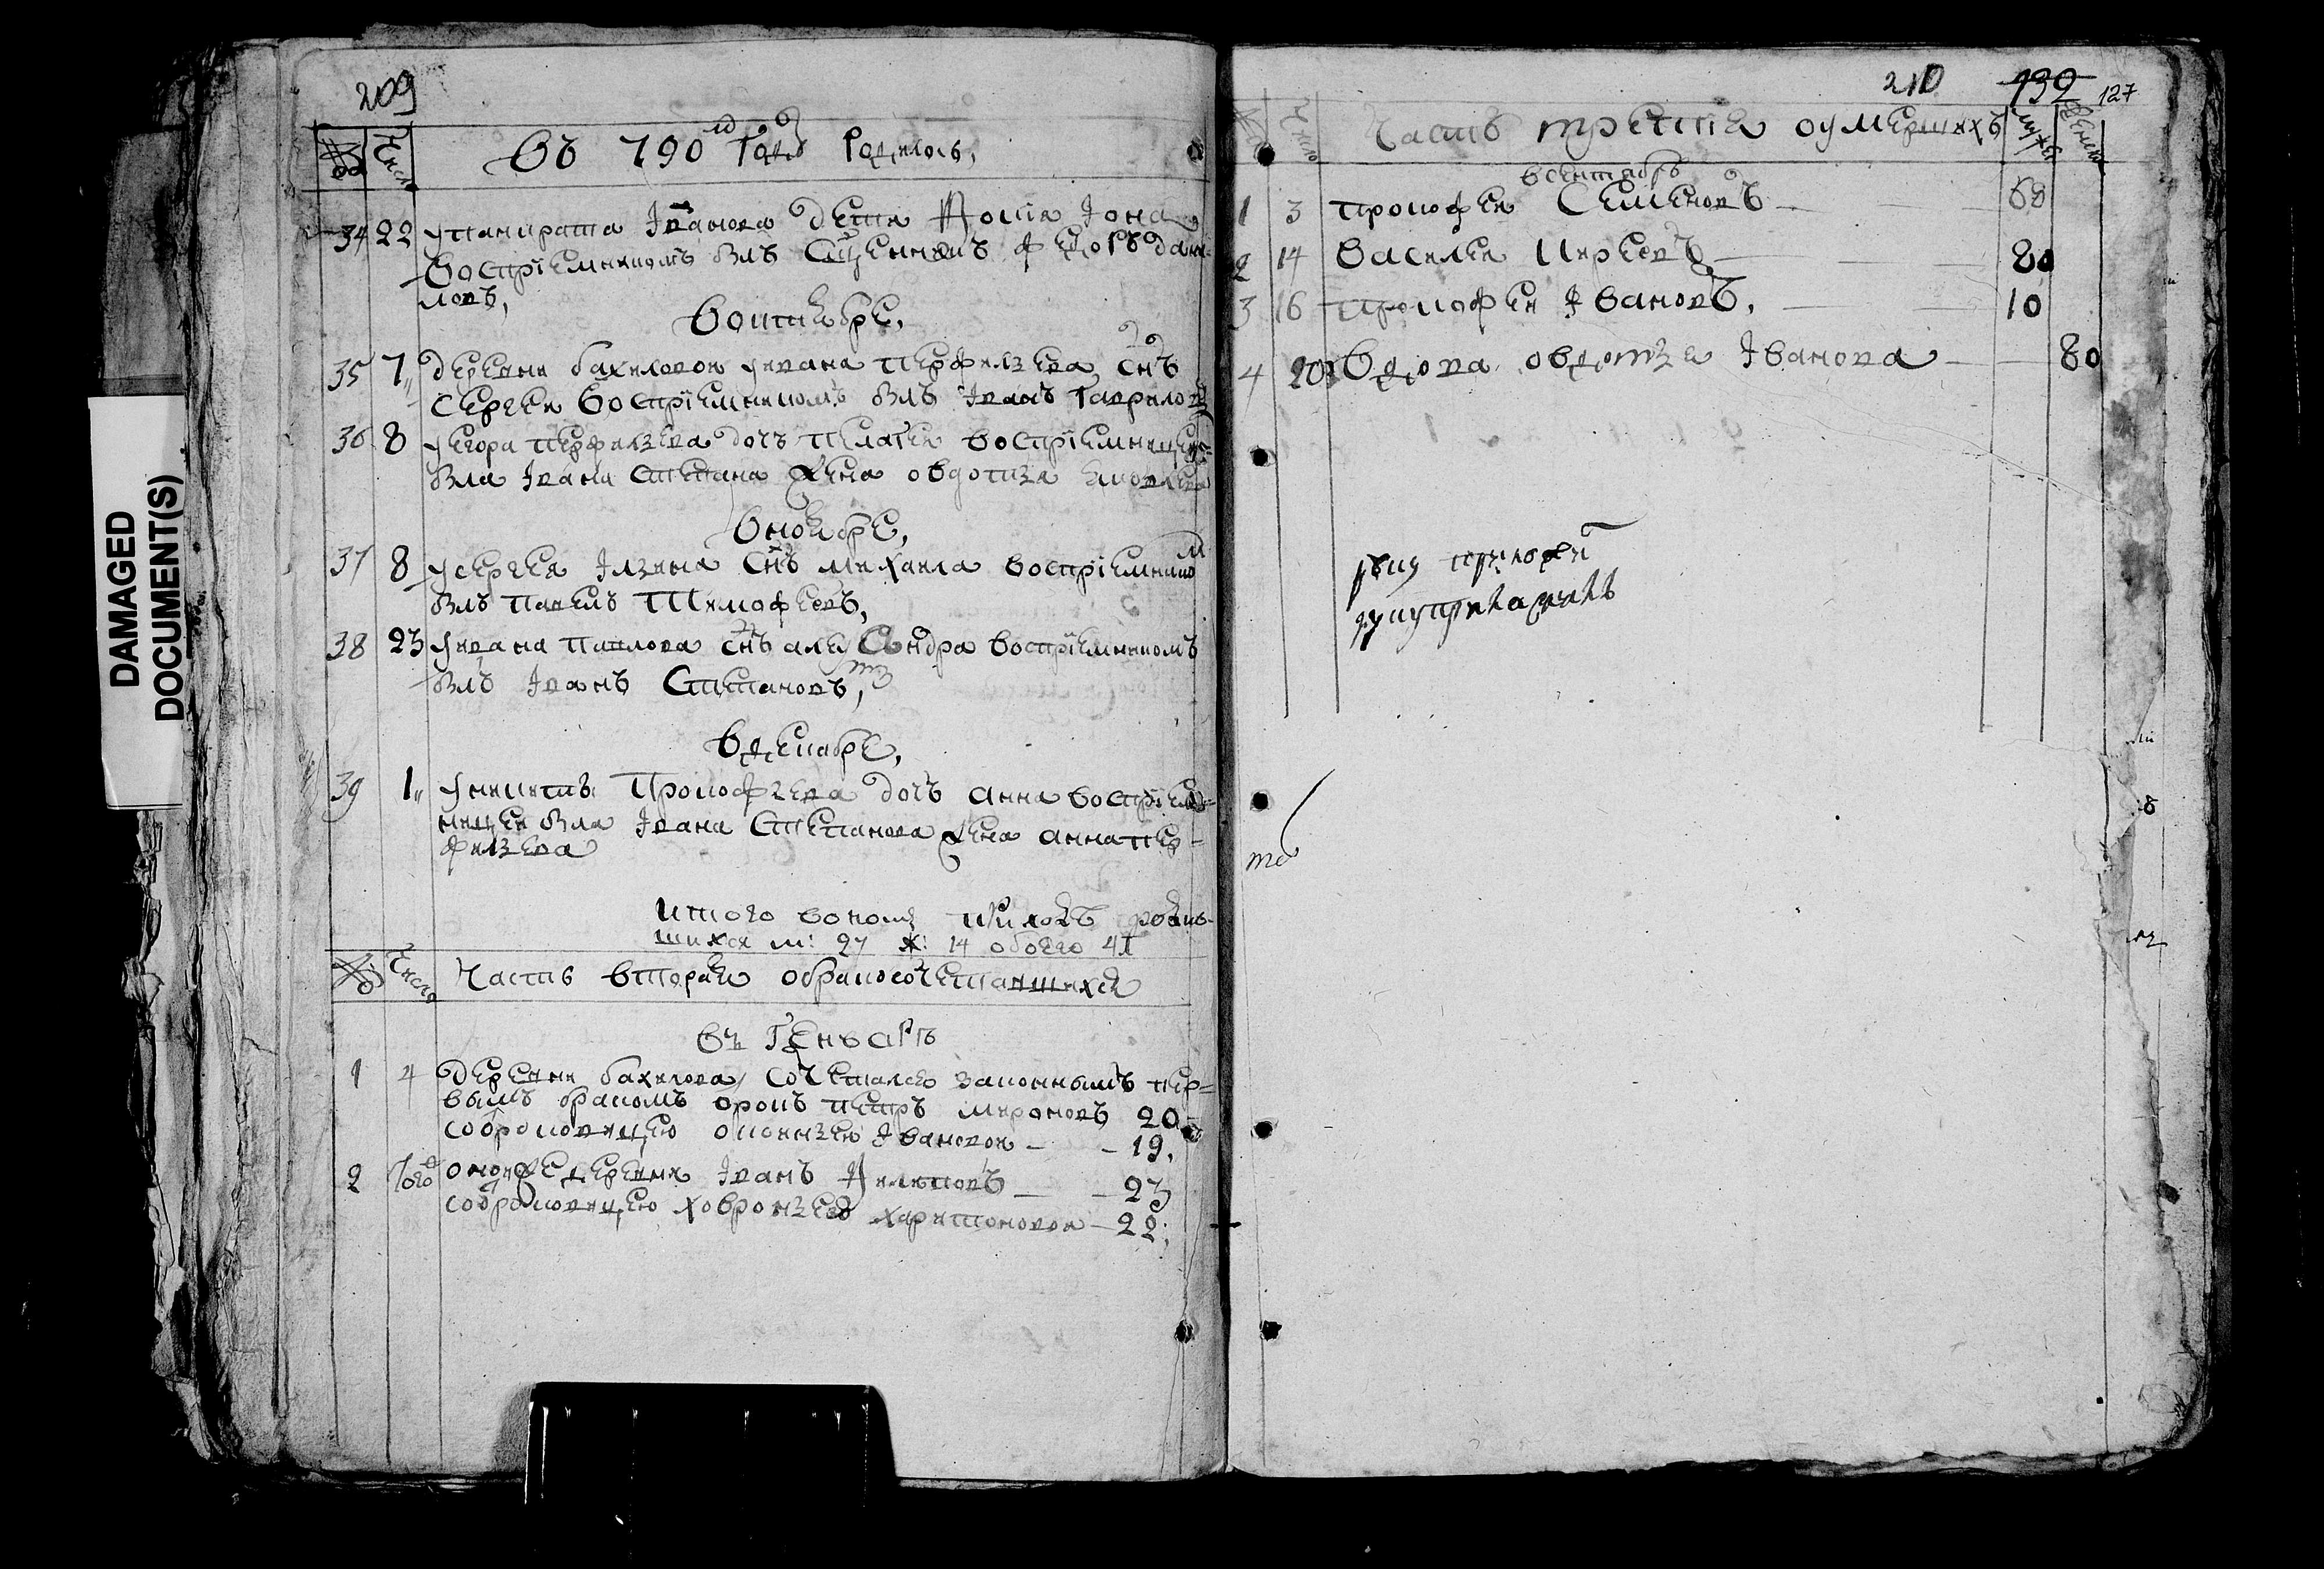 209
№ Число Въ 790м Годѣ Родилось,
34 22 упанкрата Iванова дети Фоша Iона
воспріемникомъ былъ Священникъ Федоръ Дани
ловъ,
Воктябре,
35 7 деревни бахиловой уивана перфильева снъ
сергей воспріемникомъ былъ Iванъ Гавриловъ
36 8 уегора перфильева дочь пелагея воспріемницею
была Iвана Степана жена овдотья
Вноябре,
37 8 усергея Iльина снъ михаила воспріемником
былъ павелъ Тимофеевъ,
38 23 уивана павлова снъ александра воспріемникомъ
былъ Iванъ Степановъ,
Вдекабре,
39 1 уникиты Прокофьева дочь анна воспріем=
ницею была Iвана Степанова жена анна пер=
фильева
итого вономъ приходѣ родив-
шихся м: 27 ж: 14 обоего 41
№ Число Часть вторая обракосочетавшихся
Въ Генварѣ
1 4 деревни бахилова сочетался законнымъ пер=
вымъ бракомъ отрокъ петръ мироновъ 20
собраковицею Iвановой — - 19,
2 того онойже деревни Iванъ Филиповъ — - 23
собраковицею ховроньею харитоновой - 22;
210 132 127
№ Число Часть третия оумершихъ мужеска женска
всентябрѣ
1 3 прокофей Семеновъ — 68
2 14 Василей Киреевъ — 80
3 16 прокофей Iвановъ, — 10
4 20 Вдова овдотья Iванова — 80
руку приложил